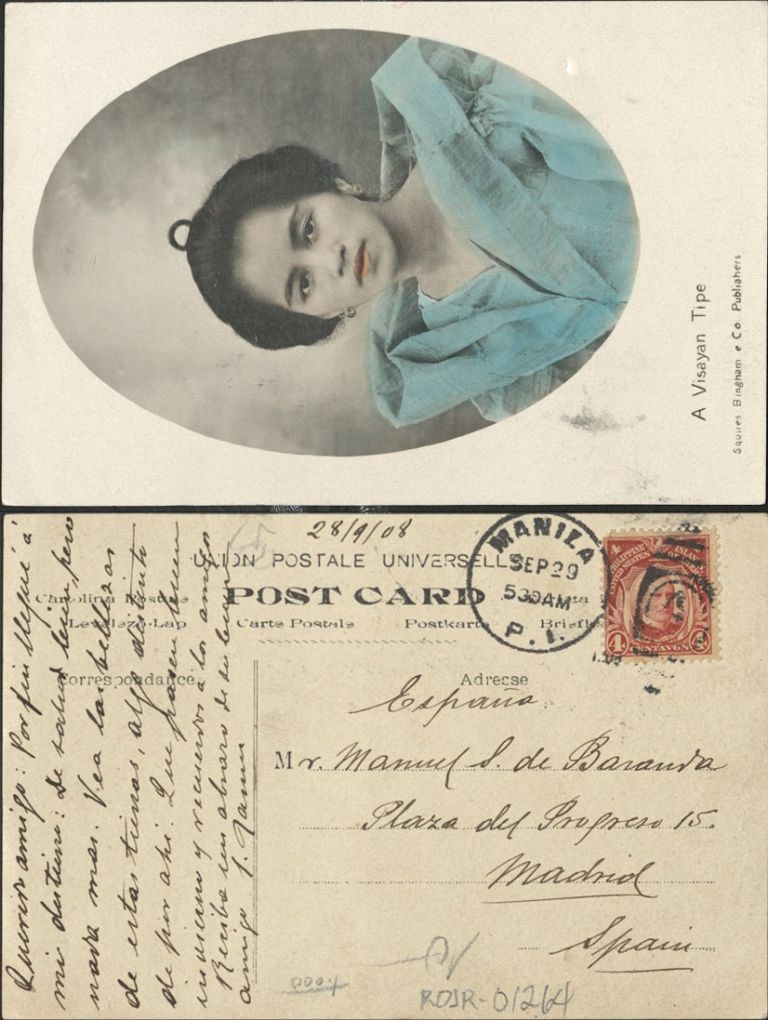 A Visayan Tipe
Squires Bingham & Co. Publishers
28/9/08
UNION POSTALE UNIVERSELLE
POST CARD
Carte Postale Postkarte
Levelezo-Lap
Correspondance
Adresse
MANILA
SEP 29
5 30 AM
P. I.
PHILIPPINE ISLANDS
UNITED STATES
4 CENTAVOS
Querido amigo: Por fin llegué á
mi destino: De salud bien, pero
nada mas. Vea las bellezas
de estas tierras, algo distinto
de por ahi. Que pasen buen
invierno y recuerdos a los amigos
Reciba un abrazo de su buen
amigo J.
España
Mr. Manuel S. de Baranda
Plaza del Progreso 15.
Madrid
Spain
RDJR-01264